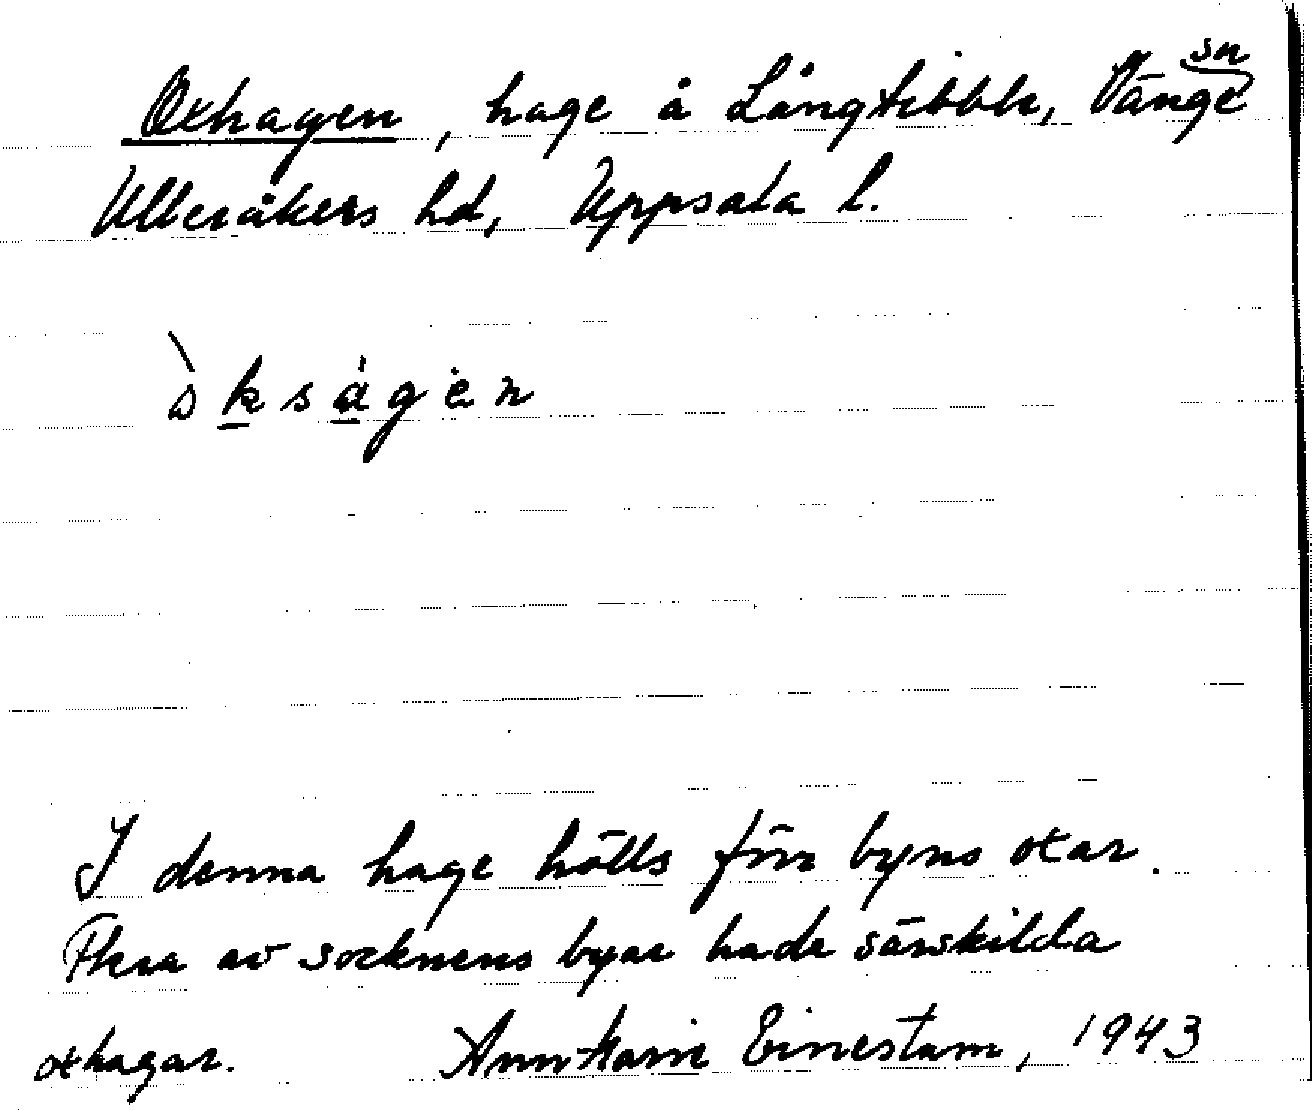 Oxhagen, hage å Långtibble, Vänge sn
Ulleråkers hd, Uppsala l.
òkságen
I denna hage hölls förr byns oxar.
Flera av socknens byar hade särskilda
oxhagar. Ann-Marie Einestam, 1943